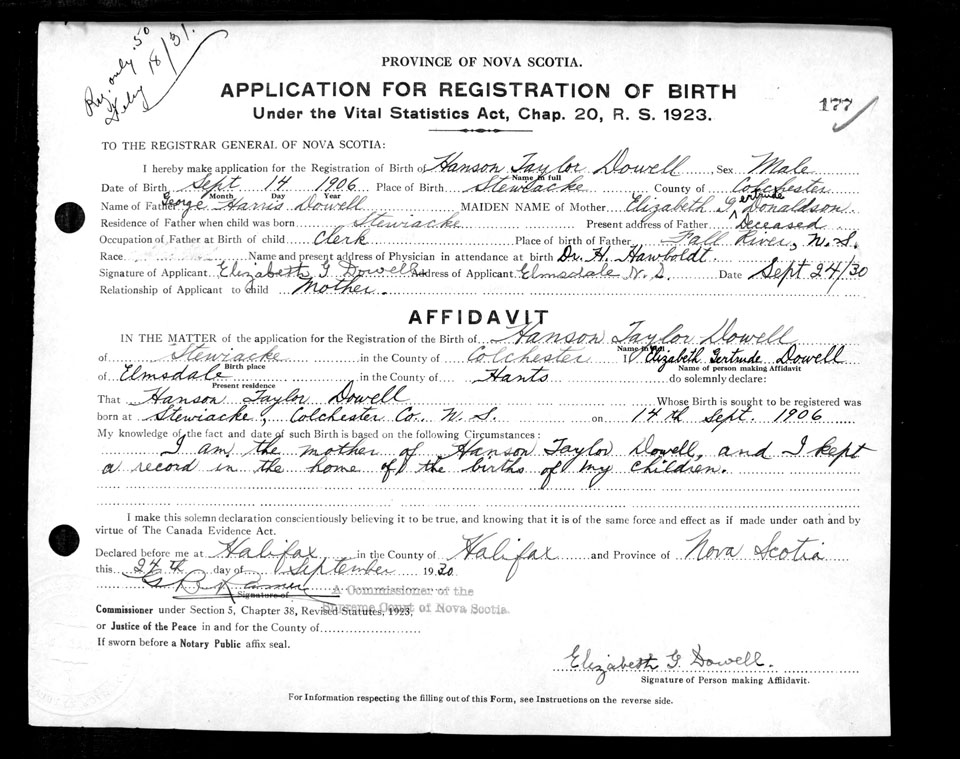 Reg. only .50
Feby 18/31.
PROVINCE OF NOVA SCOTIA.
APPLICATION FOR REGISTRATION OF BIRTH
177
Under the Vital Statistics Act, Chap. 20, R. S. 1923.
TO THE REGISTRAR GENERAL OF NOVA SCOTIA:
I hereby make application for the Registration of Birth of Hanson Taylor Dowell Sex Male
Name in full
Date of Birth Sept 14 1906 Place of Birth Stewiacke County of Colchester
Month Day Year
Name of Father George Harris Dowell MAIDEN NAME of Mother Elizabeth Gertrude Donaldson.
Residence of Father when child was born Stewiacke Present address of Father Deceased
Occupation of Father at Birth of child Clerk Place of birth of Father Fall River, N. S.
Race Name and present address of Physician in attendance at birth Dr. H. Hawboldt.
Signature of Applicant Elizabeth G Dowell Address of Applicant Elmsdale N. S. Date Sept 24/30
Relationship of Applicant to child Mother.
AFFIDAVIT
IN THE MATTER of the application for the Registration of the Birth of Hanson Taylor Dowell
Name in full
of Stewiacke in the County of Colchester I, Elizabeth Gertrude Dowell
Birth place Name of person making Affidavit
of Elmsdale in the County of Hants do solemnly declare:
Present residence
That Hanson Taylor Dowell Whose Birth is sought to be registered was
born at Stewiacke, Colchester Co., N. S. on 14th Sept. 1906
My knowledge of the fact and date of such Birth is based on the following Circumstances:
I am the mother of Hanson Taylor Dowell, and I kept
a record in the home of the births of my children.
I make this solemn declaration conscientiously believing it to be true, and knowing that it is of the same force and effect as if made under oath and by
virtue of The Canada Evidence Act.
Declared before me at Halifax in the County of Halifax and Province of Nova Scotia
this 24th day of September 1930
Signature of
A Commissioner of the
Supreme Court of Nova Scotia.
Commissioner under Section 5, Chapter 38, Revised Statutes, 1923,
or Justice of the Peace in and for the County of
If sworn before a Notary Public affix seal.
Elizabeth G. Dowell.
Signature of Person making Affidavit.
For Information respecting the filling out of this Form, see Instructions on the reverse side.